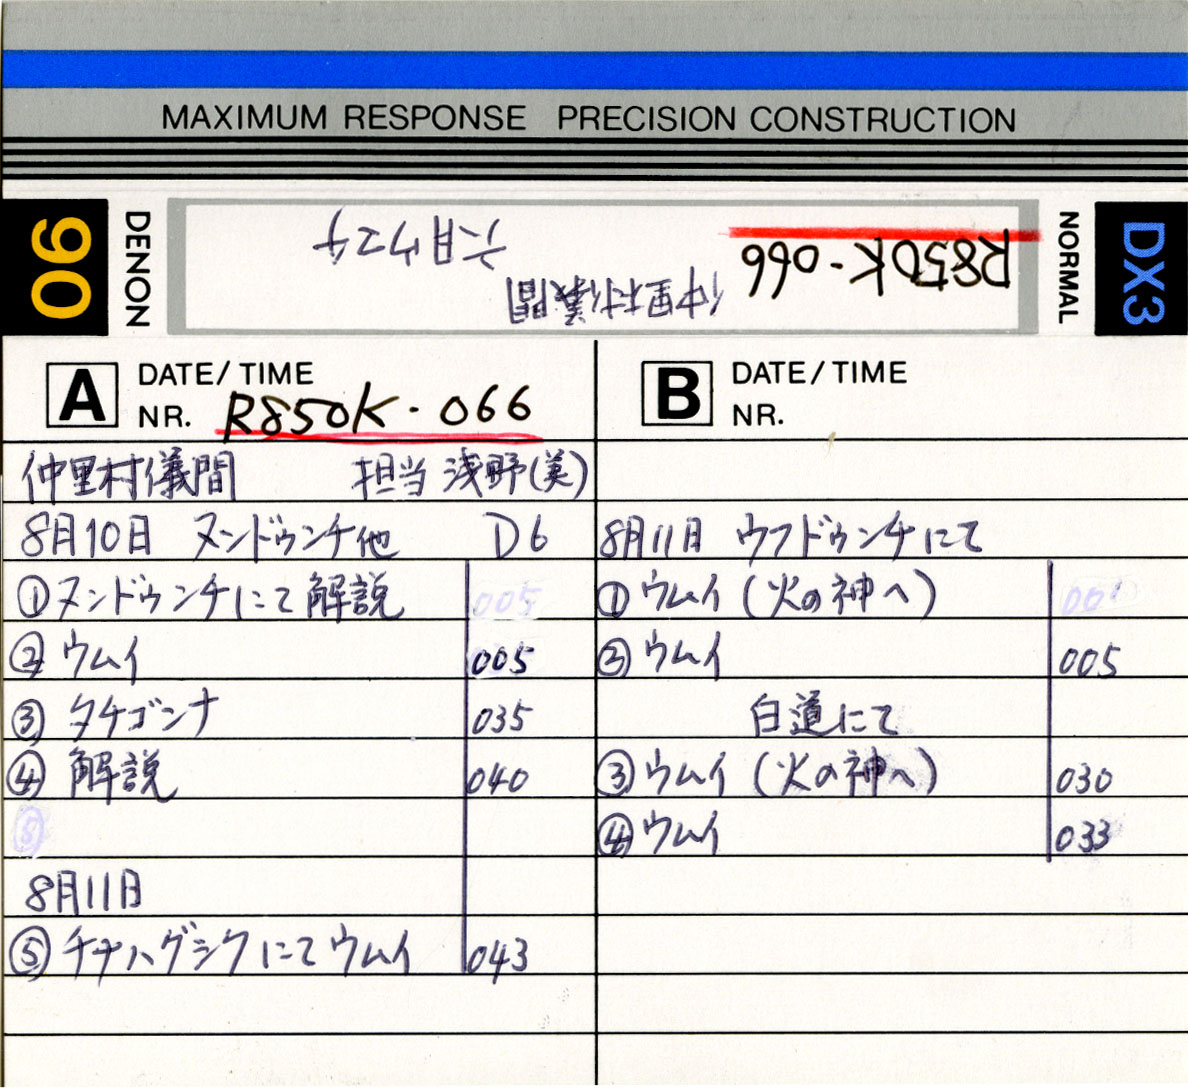 MAXIMUM RESPONSE PRECISION CONSTRUCTION
90
DENON
R850K-066
仲里村儀間
六月ウマチ
NORMAL
DX3
A DATE/TIME
NR. R850K-066
仲里村儀間 担当 浅野(美)
8月10日 ヌンドゥンチ他 D6
①ヌンドゥンチにて解説 005
②ウムイ 005
③タチゴンナ 035
④解説 040
⑤
8月11日
⑤チナハグシクにてウムイ 043
B DATE/TIME
NR.
8月11日 ウフドゥンチにて
①ウムイ(火の神へ) 001
②ウムイ 005
白道にて
③ウムイ(火の神へ) 030
④ウムイ 033